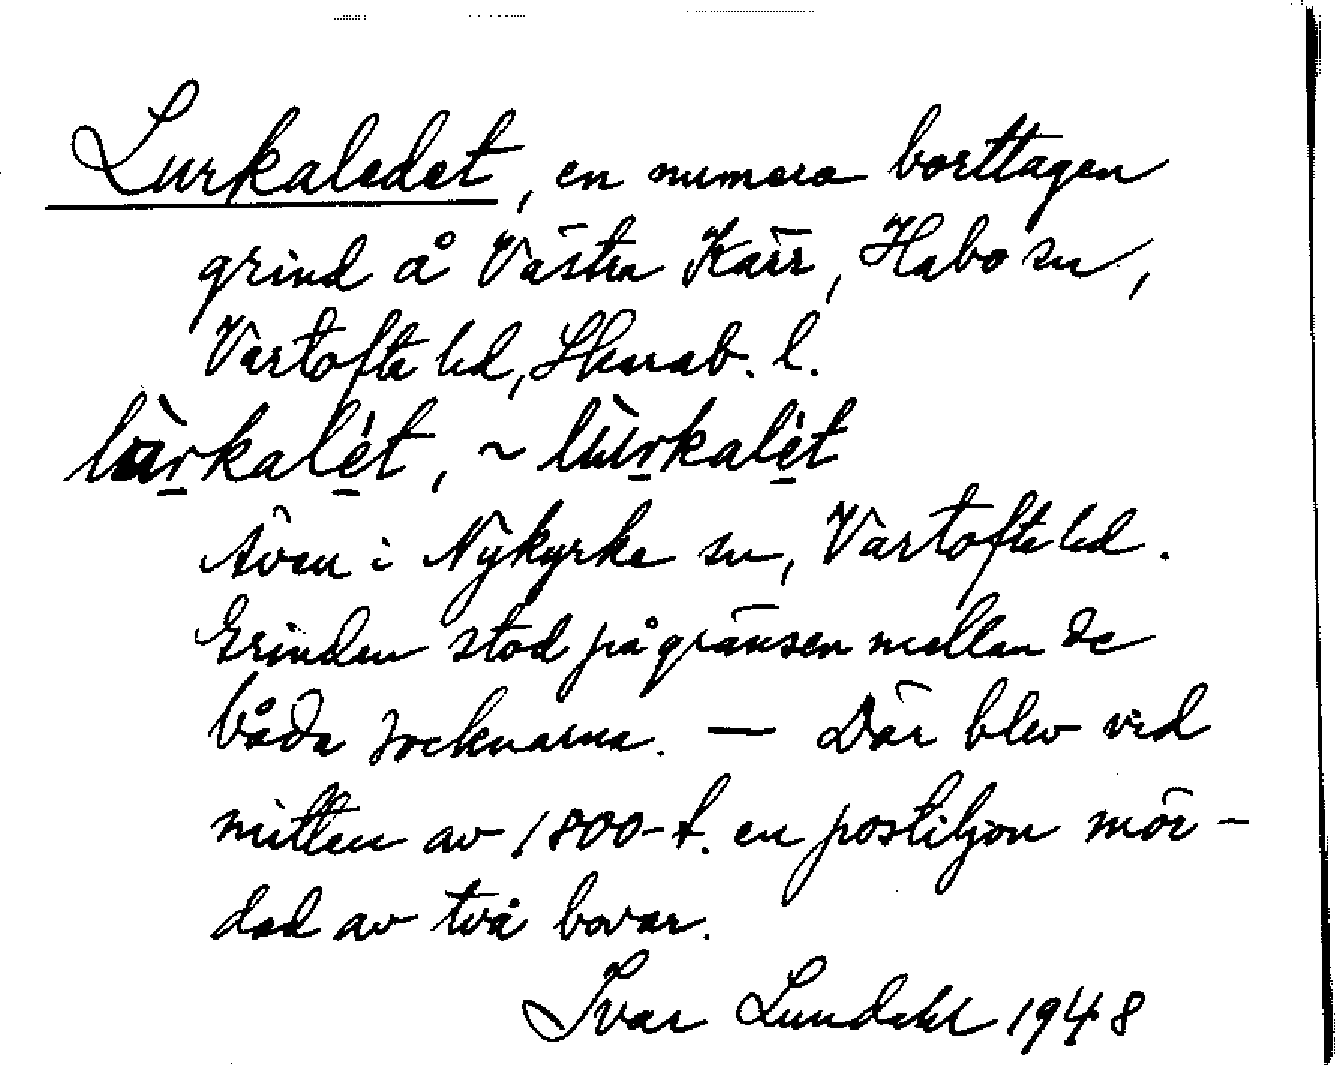 Lurkaledet, en numera borttagen
grind å Västra Kärr, Habo sn,
Vartofta hd, Skarab. l.
lùrkalét, ~ lùrkalét
Även i Nykyrke sn, Vartofta hd.
Grinden stod på gränsen mellan de
båda socknarna. — Där blev vid
mitten av 1800-t. en postiljon mör-
dad av två bovar.
Ivar Lundahl 1948